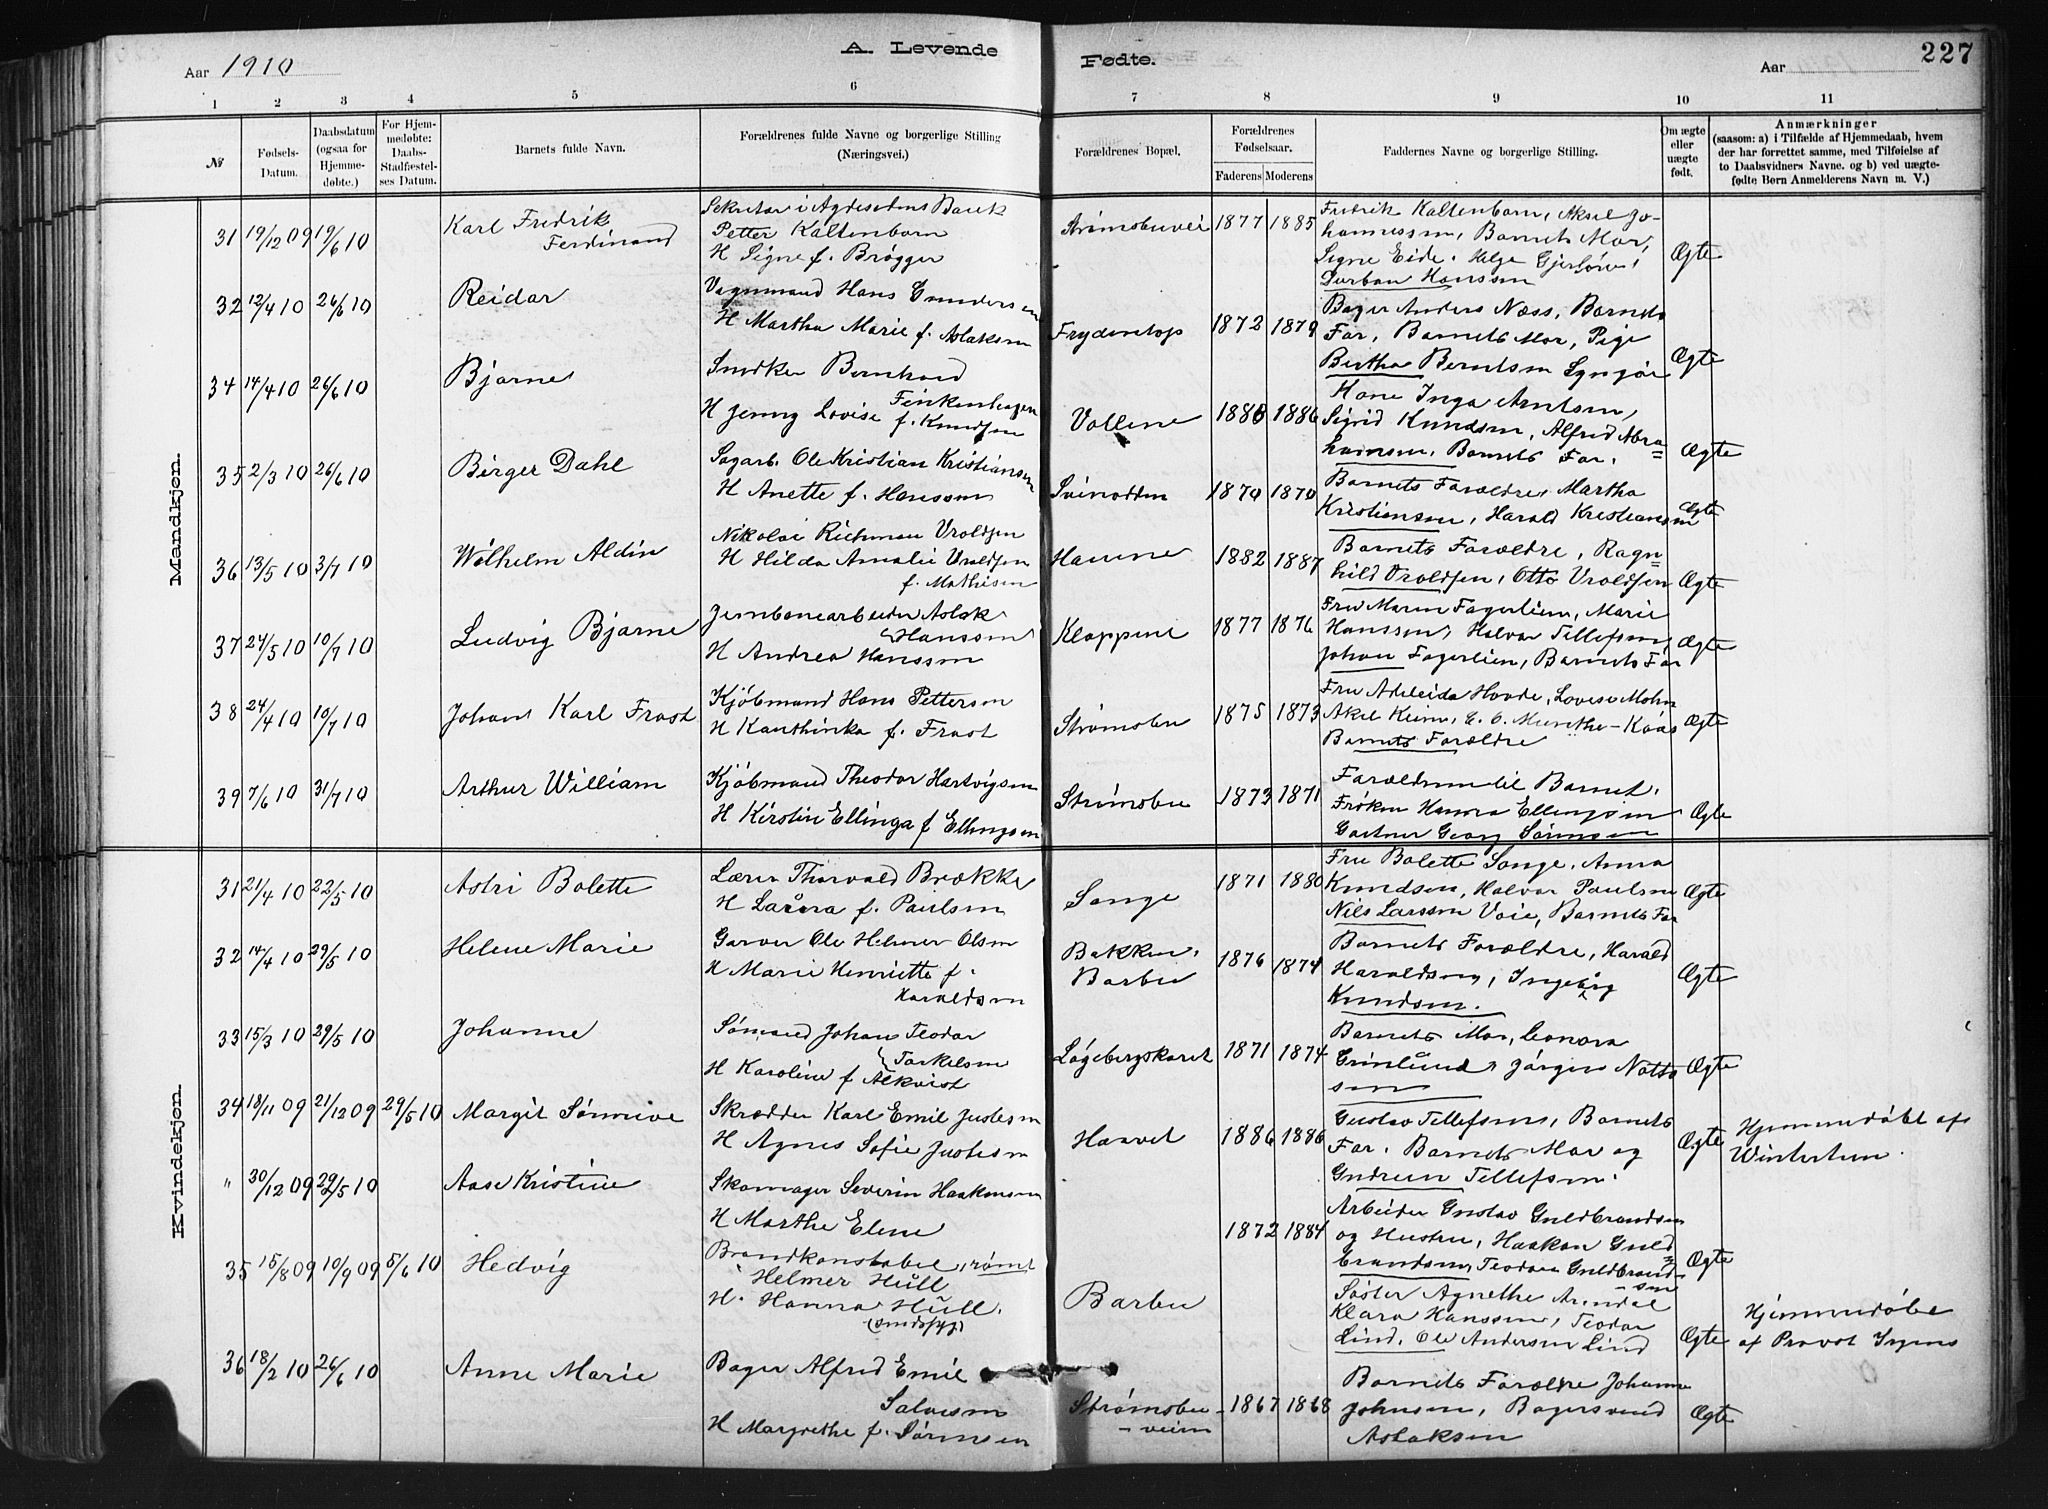 A. Levende Fødte. 227
Aar 1910 Aar
1 2 3 4 5 6 7 8 9 10 11
№
Fødsels-Datum.
Daabsdatum (ogsaa for Hjemmedøbte.)
For Hjemmedøbte: Daabs-Stadfæstelses Datum.
Barnets fulde Navn.
Forældrenes fulde Navne og borgerlige Stilling (Næringsvei.)
Forældrenes Bopæl.
Forældrenes Fødselsaar.
Faderens Moderens
Faddernes Navne og borgerlige Stilling.
Om ægte eller uægte født.
Anmærkninger
(saasom: a) i Tilfælde af Hjemmedaab, hvem der har forrettet samme, med Tilføielse af to Daabsvidners Navne. og b) ved uægtefødte Børn Anmelderens Navn m. V.)
Mandkjøn.
31 19/12 09 19/6 10 Karl Fredrik Ferdinand
Petter Kaltenborn
H Signe f. Brøgger
1877 1885
Fredrik Kaltenborn, Aksel Jo-
Barnets Mor,
Signe Eide, Helge
Ægte
32 12/4 10 26/6 10 Reidar
Vognmand Hans Gundersen
H Martha Marie f. Aslaksen
1872 1879
Bager Anders Næss, Barnets
Far, Barnets Mor, Pige
Bertha Berntsen Lyngør
Ægte
34 14/4 10 26/6 10 Bjarne
Bernhard
H Jenny Lovise f. Knudsen
Vollene
1886
Kone Inga Arntsen,
Sigrid Knudsen, Alfred Abra=
hamsen, Barnets Far.
Ægte
35 2/3 10 26/6 10 Birger Dahl
Sagarb. Ole Kristian Kristiansen
H Anette f. Hanssen
Svinodden
1870 1870
Barnets Forældre, Martha
Kristiansen, Harald Kristiansen
Ægte
36 13/5 10 3/7 10 Wilhelm Aldin
Nikolai Vroldsen
H Hilda Amalie Vroldsen
f. Mathisen
Havne
1882 1887
Barnets Forældre, Ragn=
hild Vroldsen, Otto Vroldsen
Ægte
37 24/5 10 10/7 10 Ludvig Bjarne
Jernbanearbeider Aslak
Hanssen
H Andrea Hanssen
Kloppene
1877 1876
Fru Maren Fagerlien, Marie
Hanssen, Halvor Tellefsen,
Johan Fagerlien, Barnets Far
Ægte
38 24/4 10 10/7 10 Johan Karl Frost
Kjøbmand Hans Pettersen
H Kathinka f. Frost
Strømsbu
1875 1873
Fru Adeleida Lovise Mohn
Munthe-Kaas
Barnets Forældre
Ægte
39 7/6 10 31/7 10 Arthur William
Kjøbmand Theodor Hartvigsen
H Kirstine Ellinga f Ellingsen
Strømsbu
1873 1871
Forældrene til Barnet,
Frøken Ellingsen
Gartner Georg Sørensen
Ægte
Kvindekjøn.
31 21/4 10 22/5 10 Astri Bolette
Lærer Thorvald Brække
H Laura f. Paulsen
Songe
1871 1880
Fru Bolette Songe, Anna
Knudsen, Halvor Paulsen
Nils Larssen Voie, Barnets Far
Ægte
32 14/4 10 29/5 10 Helene Marie
Garver Ole Helmer Olsen
H Marie Henriette f.
Haraldsen
Bakken,
Barbu
1876 1874
Barnets Forældre, Harald
Haraldsen, Ingeborg
Knudsen.
Ægte
33 15/3 10 29/5 10 Johanne
Sømand Johan Teodor
Torkelsen
H Karoline f Alkvist
Løgebergskaret
1871 1874
Barnets Mor,
Jørgen
sen
Ægte
34 18/11 09 21/12 09 29/5 10 Margit Sønnive
Skrædder Karl Emil Justesen
H Agnes Sofie Justesen
Haavet
1886 1886
Gustav Tellefsen, Barnets
Far, Barnets Mor og
Gudrun Tellefsen.
Ægte
Hjemmedøbt af
Wintertun.
" 30/12 09 29/5 10 Aase Kristine
Skomager Severin Haakensen
H Marthe Elene
1872 1884
Arbeider Gustav Guldbrandsen
og Hustru, Haakon Guld
brandsen, Teodora Guldbrand-
sen
Ægte
35 15/8 09 10/9 09 5/6 10 Hedvig
Brandkonstabel, rømt
Helmer Hüll
H. Hanna Hüll.
Barbu
Søster Agnethe Arendal
Klara Hanssen, Teodor
Lind, Ole Andersen Lind
Ægte
Hjemmedøbt
af Provst
36 18/2 10 26/6 10 Anne Marie
Bager Alfred Emil
Salvesen
H Margrethe f. Sørensen
Strømsbu-
-veien
1867 1868
Barnets Forældre Johanne
Johnsen, Bagersvend
Aslaksen
Ægte